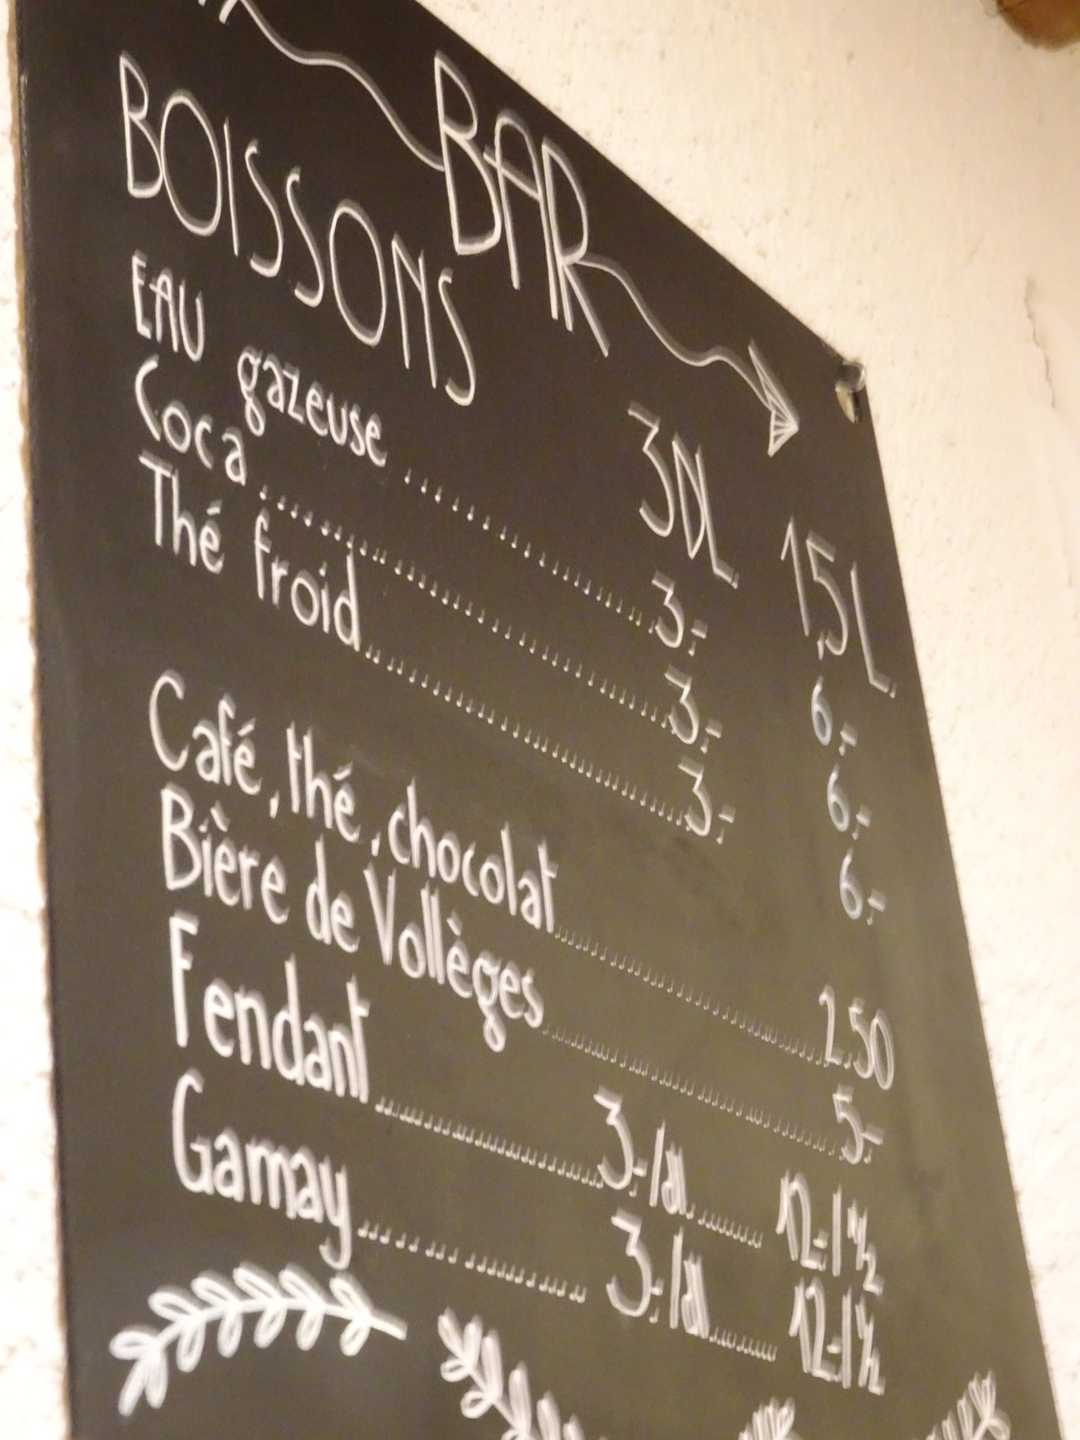 BAR
BOISSONS
3DL 1,5L
EAU gazeuse 3.- 6.-
Coca 3.- 6.-
Thé froid 3.- 6.-
Café, thé, chocolat 2.50
Bière de Vollèges 5.-
Fendant 3.-/dl 12.-/½
Gamay 3.-/dl 12.-/½